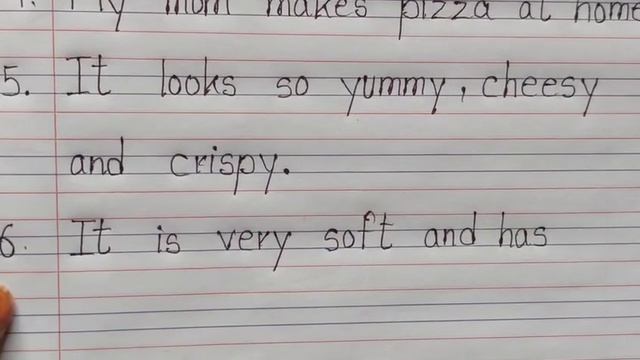 My mom makes pizza at home
5. It looks so yummy, cheesy
and crispy.
6. It is very soft and has